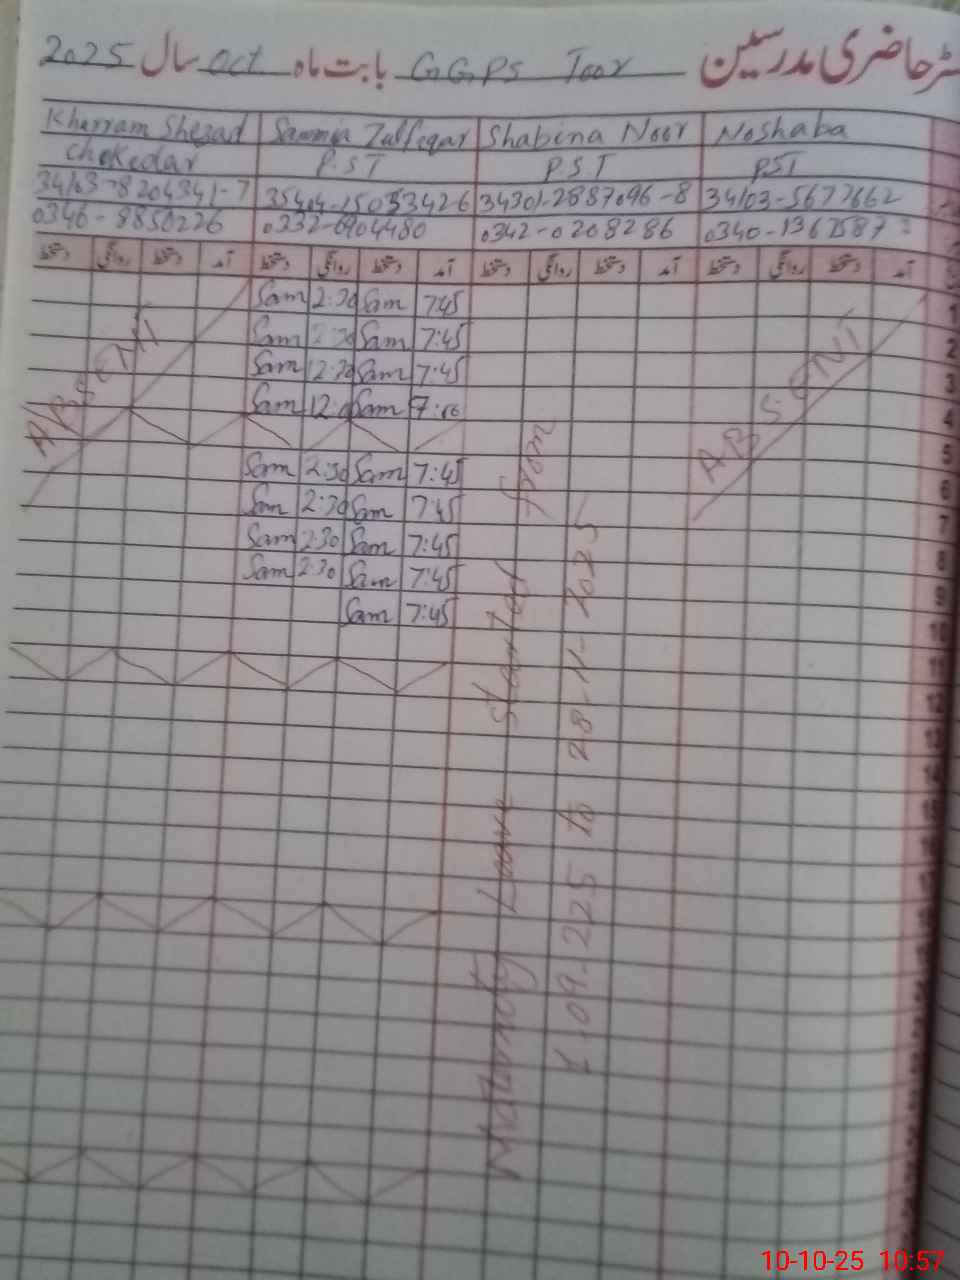 رجسٹر حاضری مدرسین GGPS Toor بابت ماہ Oct سال 2025
Kharram Shezad Sammia Zulfeqar Shabina Noor Noshaba
Chokedar P.S.T P.S.T PST
34103-8204341-7 34301-2887096-8 34103-5677662
0346-8850226 0332-6904480 0342-0208286 0340-1367587
آمد دستخط روانگی دستخط آمد دستخط روانگی دستخط آمد دستخط روانگی دستخط آمد دستخط روانگی دستخط
Sam 2:30 Sam 7:45 1
Sam 2:30 Sam 7:45 2
Sam 12:30 Sam 7:45 3
Sam Sam 4
5
Sam 2:30 Sam 7:45 6
Sam 2:30 Sam 7:45 7
Sam 2:30 Sam 7:45 8
Sam 2:30 Sam 7:45 9
Sam 7:45 10
11
12
ABSENT
Maturnity Leave started from
1-09-225 to 28-11-2025
ABSENT
10-10-25 10:57